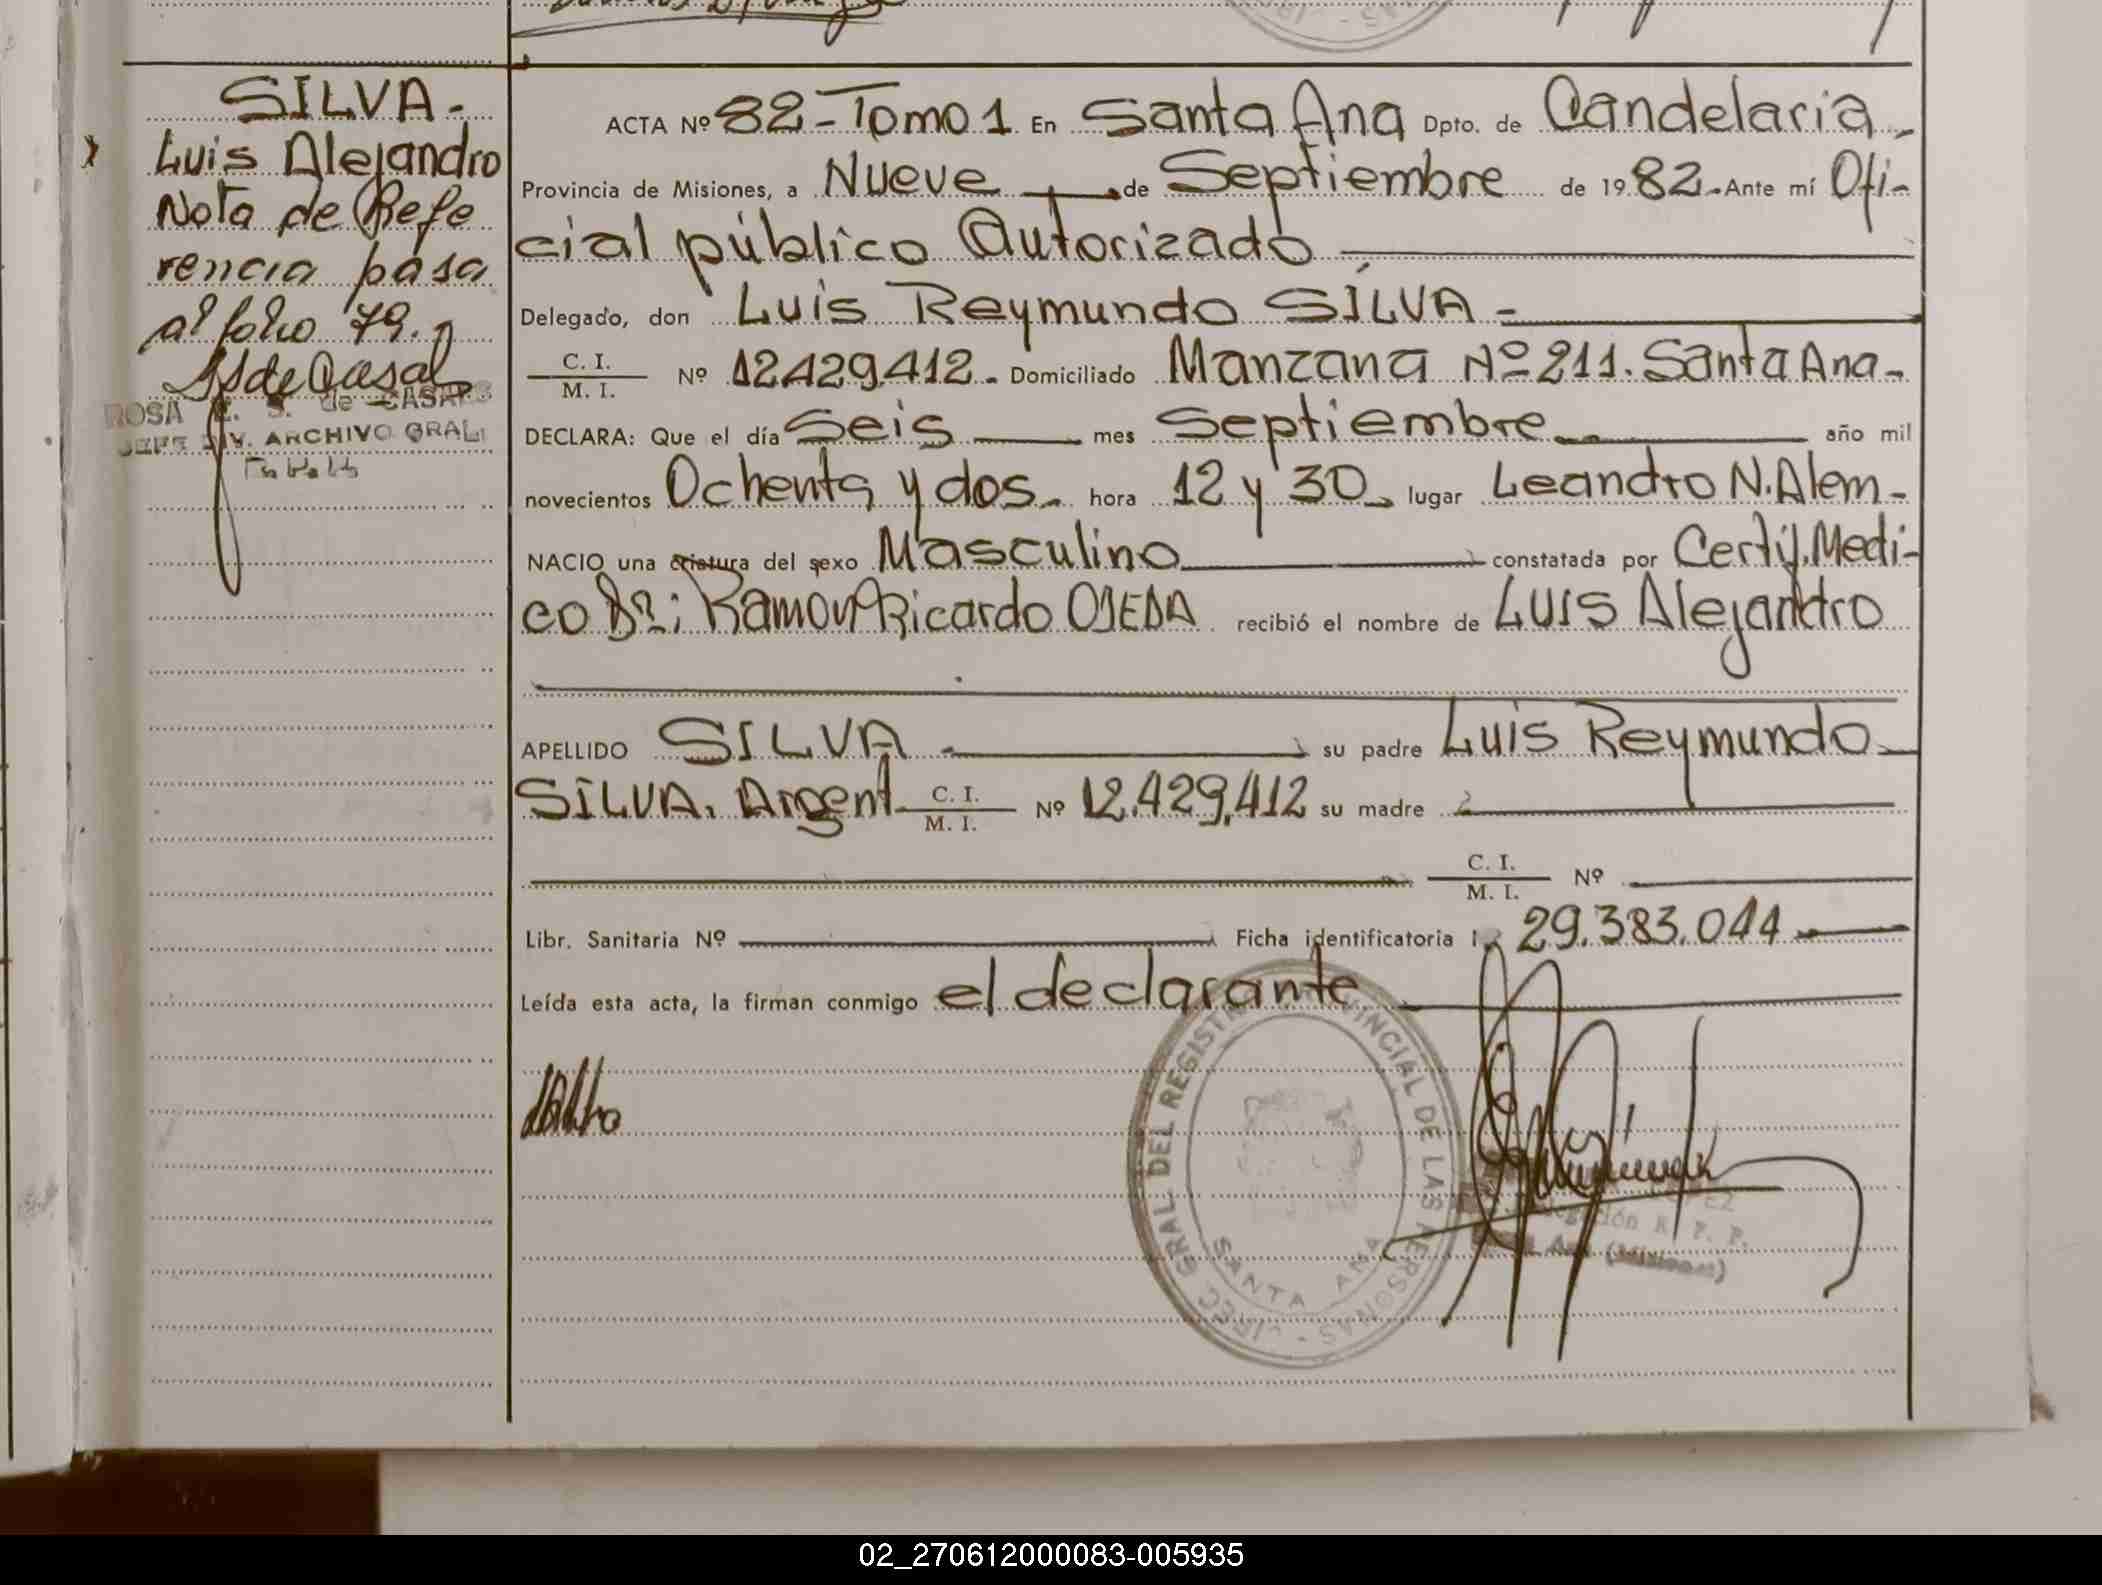 SILVA.
Luis Alejandro
Nota de Refe
rencia pasa
al folio 79.
ROSA E. S. de CASALS
JEFE DIV. ARCHIVO GRAL
ACTA Nº 82 - Tomo 1 En Santa Ana Dpto. de Candelaria
Provincia de Misiones, a Nueve de Septiembre de 1982.- Ante mí Ofi-
cial público Autorizado
Delegado, don Luis Reymundo SILVA -
C. I.
M. I. Nº 12429.412. Domiciliado Manzana Nº 211. Santa Ana-
DECLARA: Que el día Seis mes Septiembre año mil
novecientos Ochenta y dos. hora 12 y 30 lugar Leandro N. Alem -
NACIO una criatura del sexo Masculino constatada por Certif. Medi-
co Dr: Ramon Ricardo OJEDA recibió el nombre de LUIS Alejandro
APELLIDO SILVA su padre Luis Reymundo
SILVA. Argent C. I.
M. I. Nº 12.429.412 su madre
C. I.
M. I. Nº
Libr. Sanitaria Nº Ficha identificatoria 29.383.044
Leída esta acta, la firman conmigo el declarante
DIREC. GRAL DEL REGISTRO PROVINCIAL DE LAS PERSONAS -
SANTA ANA
Delegación R. P. P.
Ana (Misiones)
02_270612000083-005935